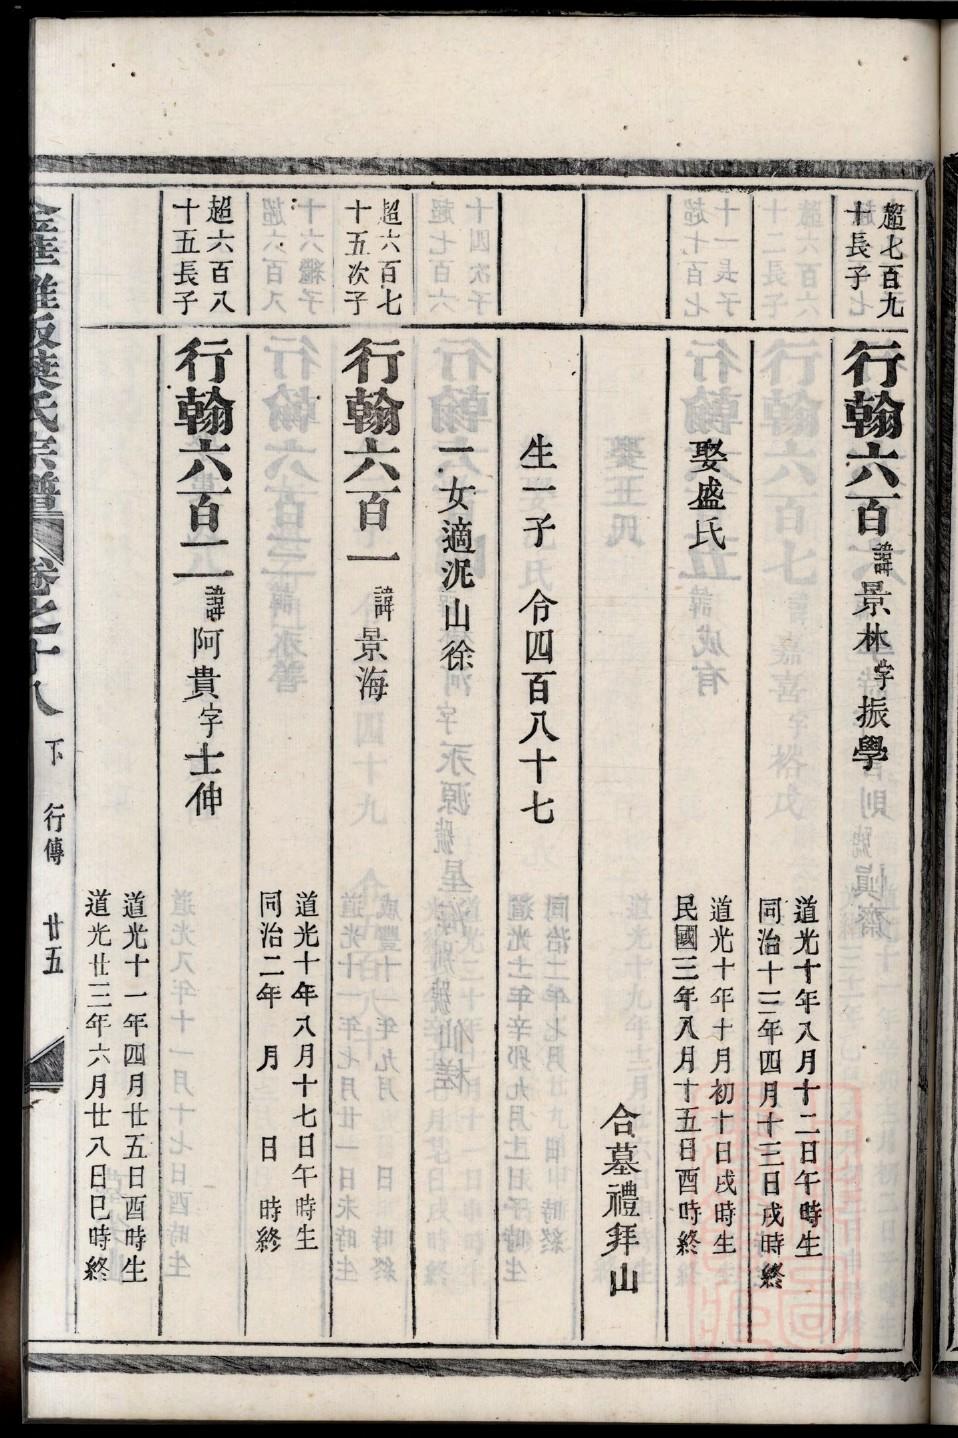 超七百九
十長子
行翰六百 諱景林字振學
道光十年八月十二日午時生
同治十三年四月十三日戌時終
娶盛氏
道光十年十月初十日戌時生
民國三年八月十五日酉時終
合墓禮拜山
生一子 令四百八十七
一女適泥山徐
超六百七
十五次子
行翰六百一 諱景海
道光十年八月十七日午時生
同治二年 月 日 時終
超六百八
十五長子
行翰六百二 諱阿貴字士伸
道光十一年四月廿五日酉時生
道光廿三年六月廿八日巳時終
葉氏宗譜 卷之十八 下 行傳 廿五